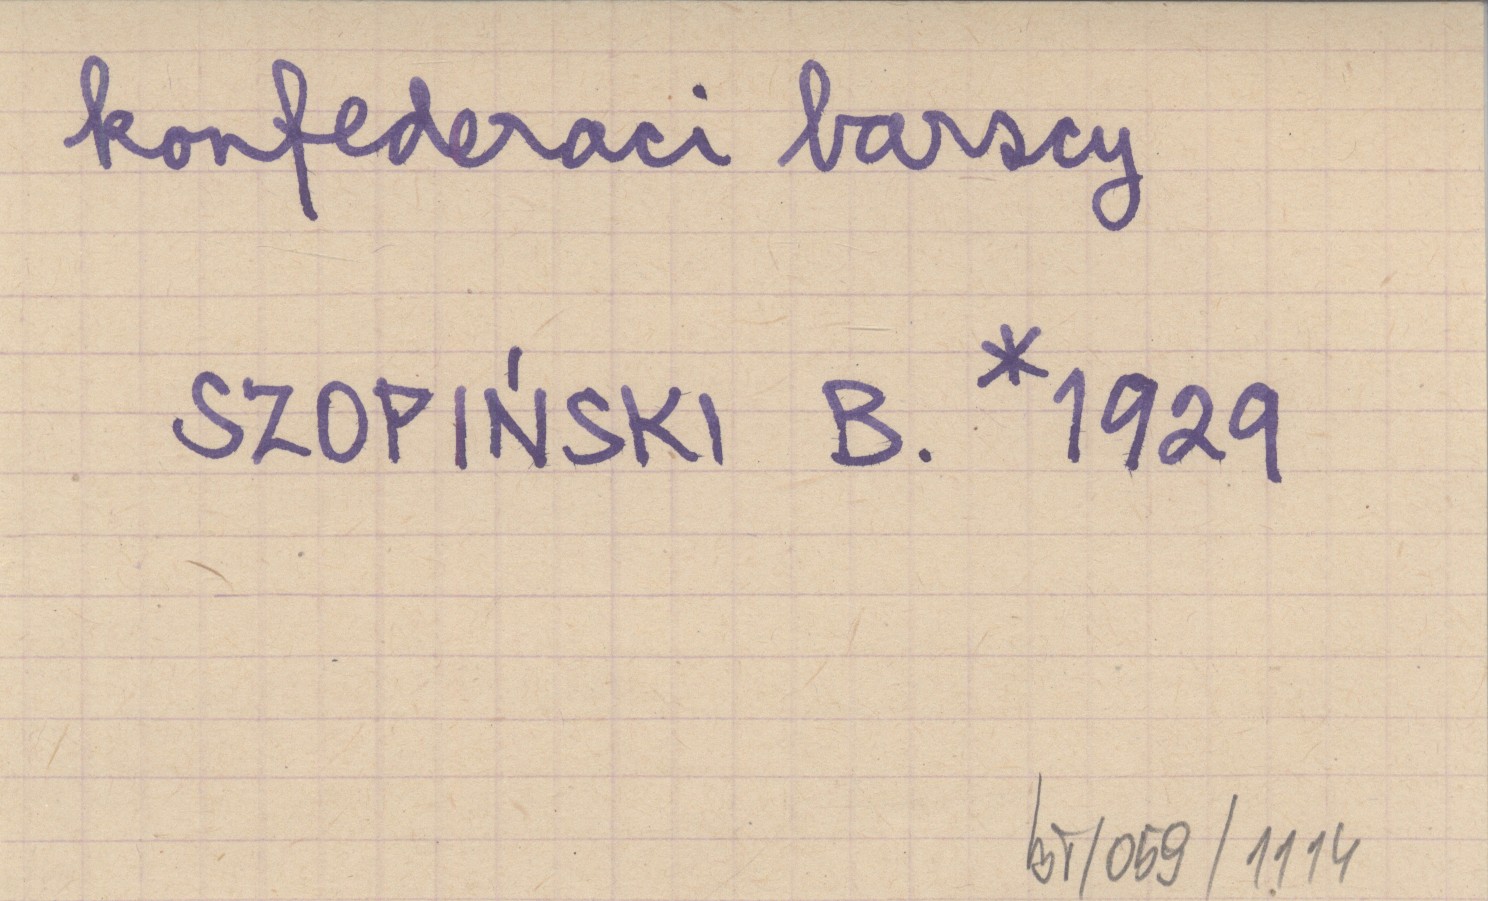 konfederaci barscy
SZOPIŃSKI B. *1929
/059/1114